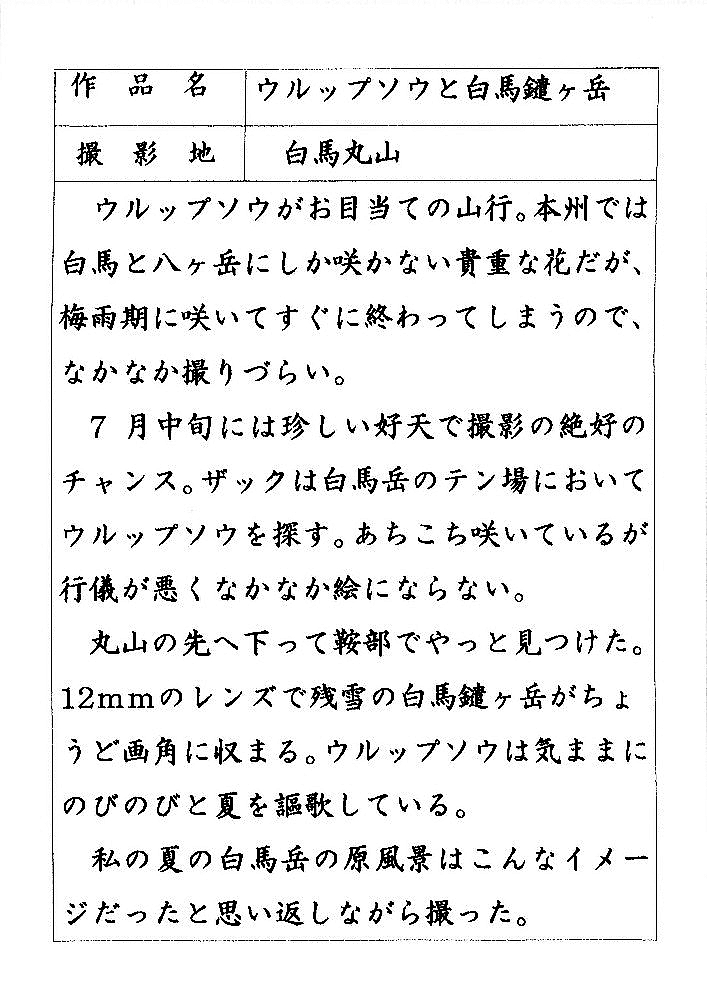 作品名 ウルップソウと白馬鑓ヶ岳
撮影地 白馬丸山
ウルップソウがお目当ての山行。本州では
白馬と八ヶ岳にしか咲かない貴重な花だが、
梅雨期に咲いてすぐに終わってしまうので、
なかなか撮りづらい。
7月中旬には珍しい好天で撮影の絶好の
チャンス。ザックは白馬岳のテン場において
ウルップソウを探す。あちこち咲いているが
行儀が悪くなかなか絵にならない。
丸山の先へ下って鞍部でやっと見つけた。
12mmのレンズで残雪の白馬鑓ヶ岳がちょ
うど画角に収まる。ウルップソウは気ままに
のびのびと夏を謳歌している。
私の夏の白馬岳の原風景はこんなイメー
ジだったと思い返しながら撮った。